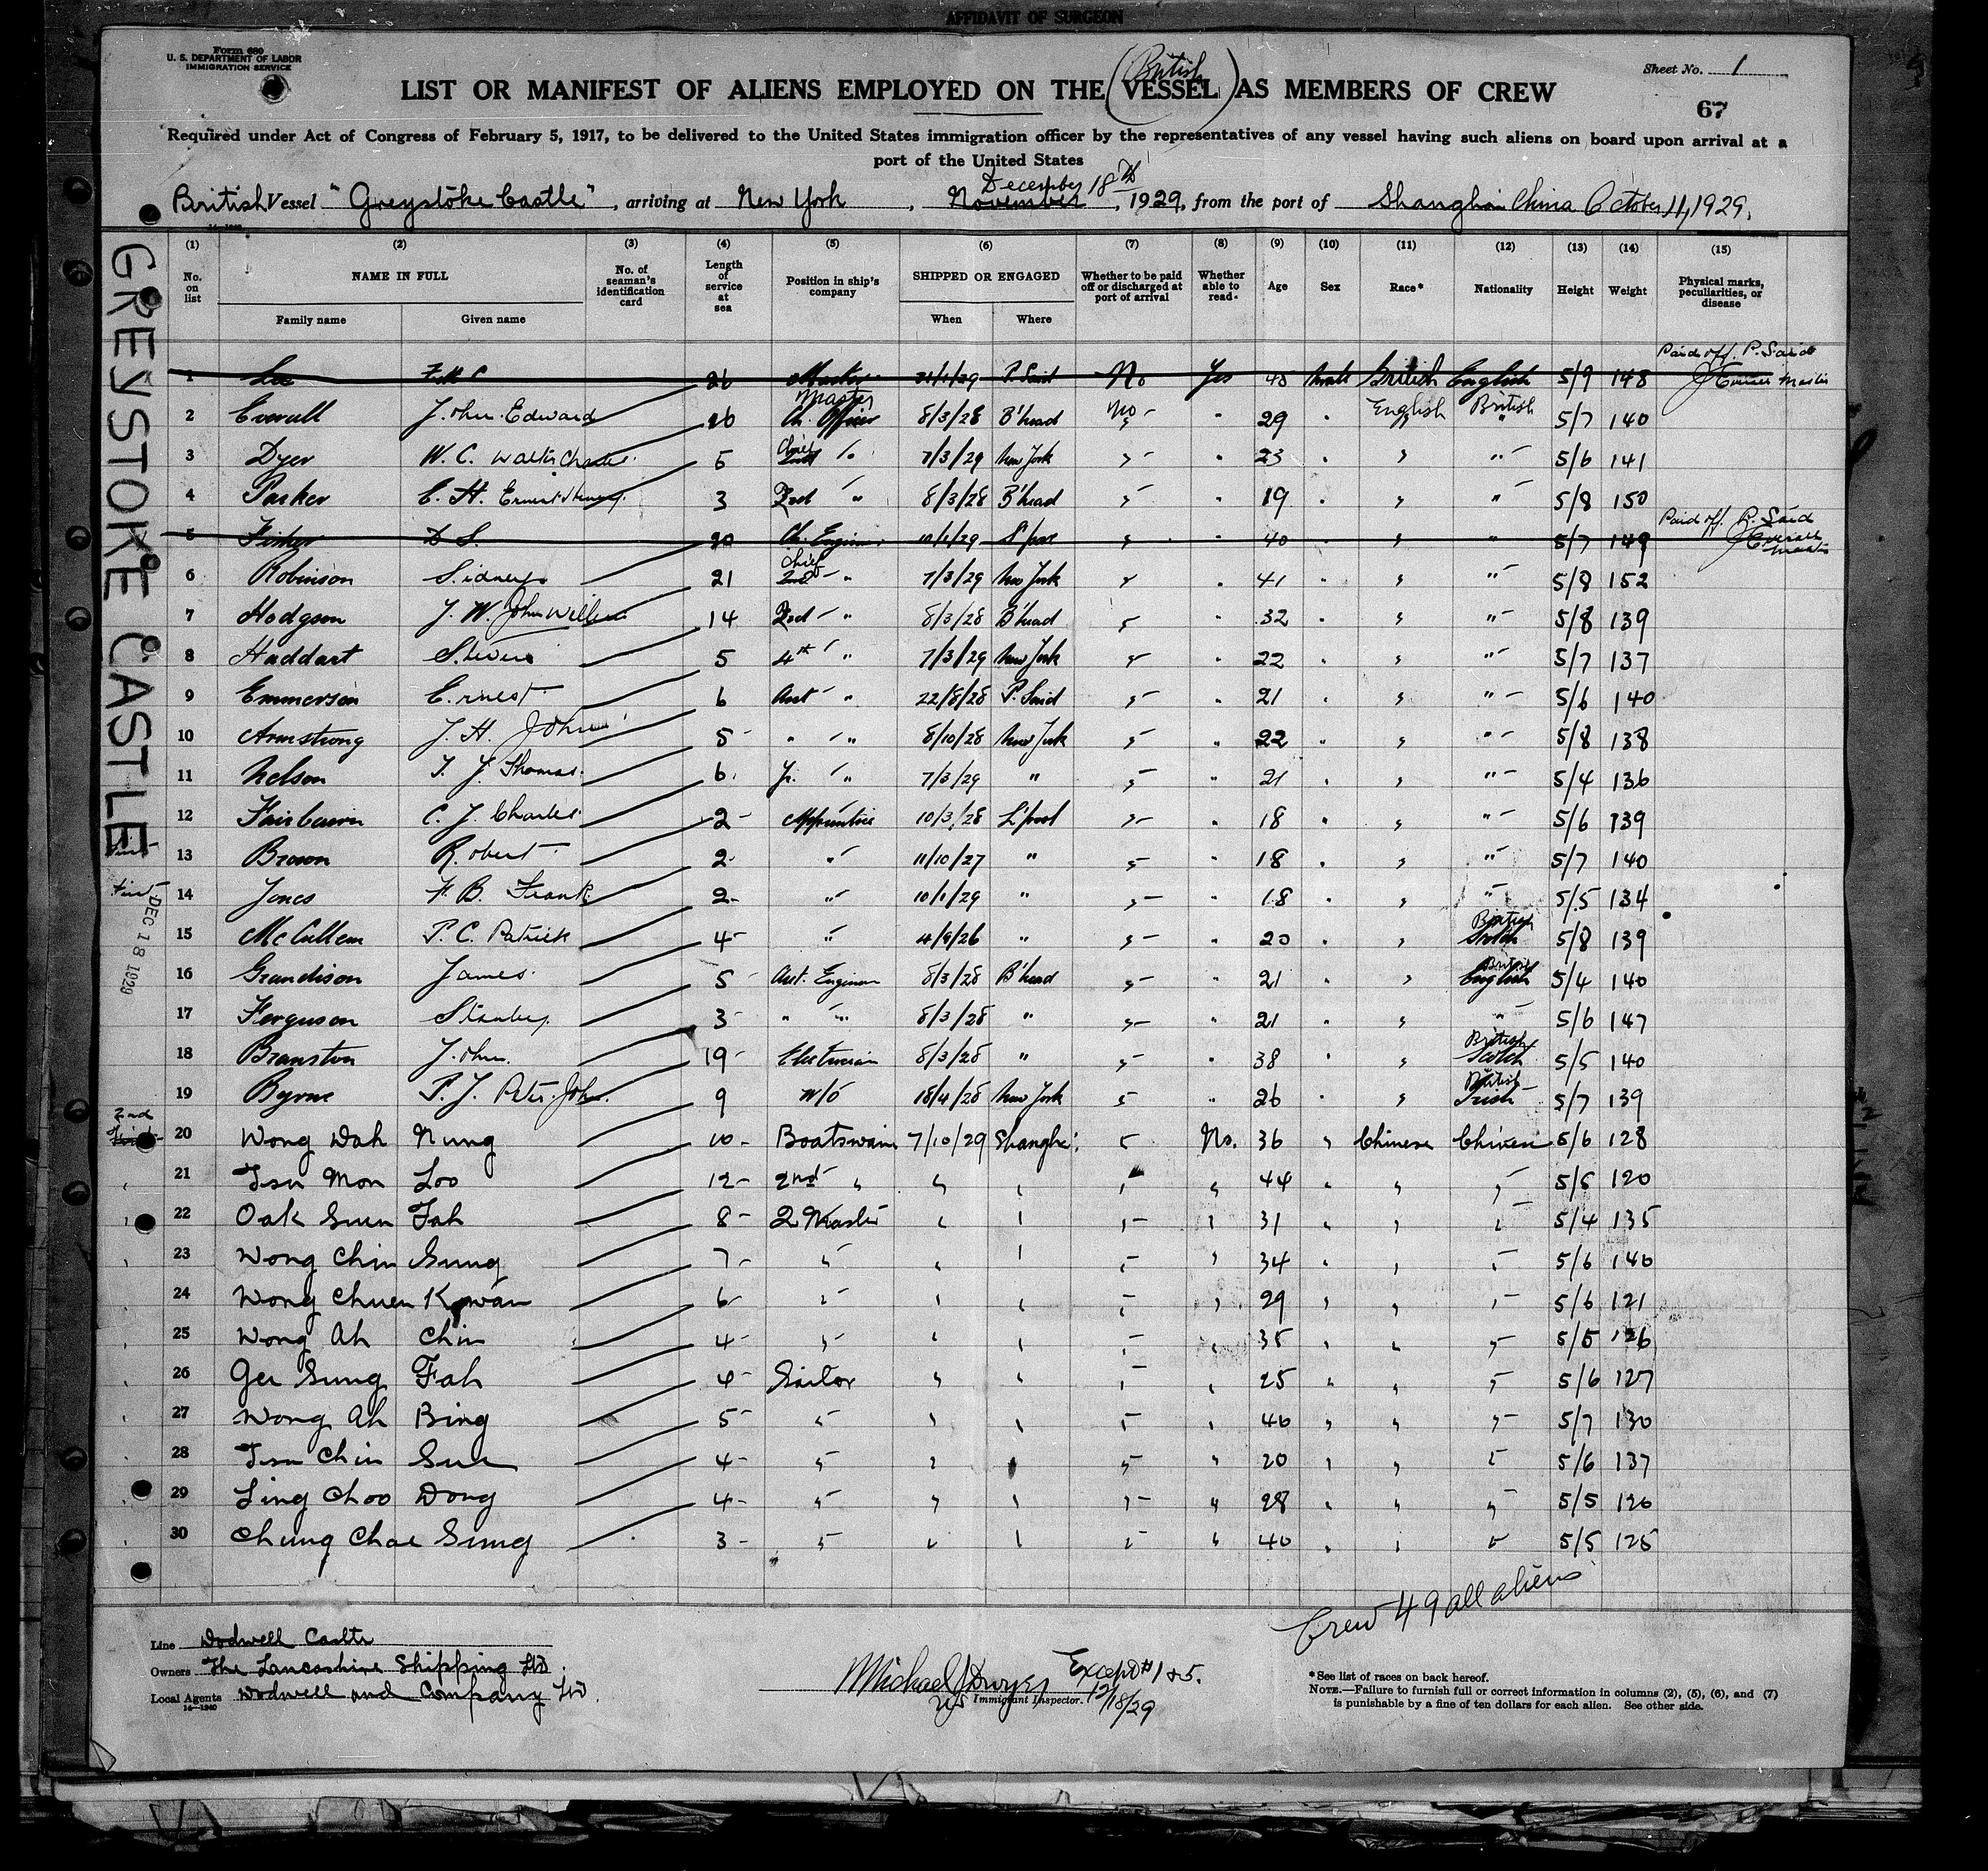 AFFIDAVIT OF SURGEON
Form 680
U. S. DEPARTMENT OF LABOR
IMMIGRATION SERVICE
Sheet No. 1
67
LIST OR MANIFEST OF ALIENS EMPLOYED ON THE (British VESSEL) AS MEMBERS OF CREW
Required under Act of Congress of February 5, 1917, to be delivered to the United States immigration officer by the representatives of any vessel having such aliens on board upon arrival at a
port of the United States
British Vessel "Greystoke Castle", arriving at New York, November December 18th, 1929, from the port of Shanghai China October 11, 1929.
GREYSTOKE CASTLE
(1) (2) (3) (4) (5) (6) (7) (8) (9) (10) (11) (12) (13) (14) (15)
No. on list NAME IN FULL No. of seaman's identification card Length of service at sea Position in ship's company SHIPPED OR ENGAGED Whether to be paid off or discharged at port of arrival Whether able to read Age Sex Race* Nationality Height Weight Physical marks, peculiarities, or disease
Family name Given name When Where
Paid off P. Said
1 Lee 26 Master 31/1/29 P. Said No Yes 45 Male British English 5/9 148 Master
Master
2 Everall John Edward 26 Ch. Officer 8/3/28 B'head No " 29 " English British 5/7 140
3 Dyer W. C. Walter Charles 5 Chief 2nd " 7/3/29 New York " " 23 " " " 5/6 141
4 Parker E. H. Ernest Henry 3 " 8/3/28 B'head " " 19 " " " 5/8 150
Paid off P. Said
5 Fisher D S. 20 Ch. Engineer 10/1/29 L'pool " " 40 " " " 5/7 149 J Everall Master
6 Robinson Sidney 21 Chief 2nd " 7/3/29 New York " " 41 " " " 5/8 152
7 Hodgson J. W. John William 14 " 8/3/28 B'head " " 32 " " " 5/8 139
8 Huddart Steven 5 4th " 7/3/29 New York " " 22 " " " 5/7 137
9 Emmerson Ernest 6 Asst " 22/8/28 P. Said " " 21 " " " 5/6 140
10 Armstrong J. H. John 5 " " 8/10/28 New York " " 22 " " " 5/8 138
11 Nelson T. J. Thomas 6 Jr. " 7/3/29 " " " 21 " " " 5/4 136
12 Fairbairn C. J. Charles 2 Apprentice 10/3/28 L'pool " " 18 " " " 5/6 139
13 Brown Robert 2 " 11/10/27 " " " 18 " " " 5/7 140
First
14 Jones F. B. Frank 2 " 10/1/29 " " " 18 " " " 5/5 134
DEC 18 1929
15 McCullem P. C. Patrick 4 " 4/9/26 " " " 20 " " British Scotch 5/8 139
16 Grandison James 5 Asst. Engineer 8/3/28 B'head " " 21 " " British English 5/4 140
17 Ferguson Stanley 3 " " 8/3/28 " " " 21 " " " 5/6 147
18 Branston John 19 Electrician 8/3/28 " " " 38 " " British Scotch 5/5 140
19 Byrne P. J. Peter John 9 W/O 18/4/28 New York " " 26 " " British Irish 5/7 139
2nd
20 Wong Dah Nung 10 Boatswain 7/10/29 Shanghai " No. 36 " Chinese Chinese 5/6 128
21 Tsu Mon Loo 12 2nd " " " " " 44 " " " 5/5 120
22 Oak Suen Fah 8 " " " " 31 " " " 5/4 135
23 Wong Chin Sung 7 " " " " " 34 " " " 5/6 140
24 Wong Chuen Kwan 6 " " " " " 29 " " " 5/6 121
25 Wong Ah Chin 4 " " " " " 35 " " " 5/5 126
26 Gee Sung Fah 4 Sailor " " " " 25 " " " 5/6 127
27 Wong Ah Bing 5 " " " " " 40 " " " 5/7 130
28 Tsu Chin Sue 4 " " " " " 20 " " " 5/6 137
29 Ling Choo Dong 4 " " " " " 28 " " " 5/5 126
30 Chung Chae Sung 3 " " " " " 40 " " " 5/5 125
Crew 49 all aliens
Line Dodwell Castle
Owners The Lancashire Shipping Ltd.
Local Agents Dodwell and Company Ltd.
14—1240
Michael J Dwyer Except #1 & 5.
US Immigrant Inspector. 12/18/29
*See list of races on back hereof.
NOTE.—Failure to furnish full or correct information in columns (2), (5), (6), and (7)
is punishable by a fine of ten dollars for each alien. See other side.